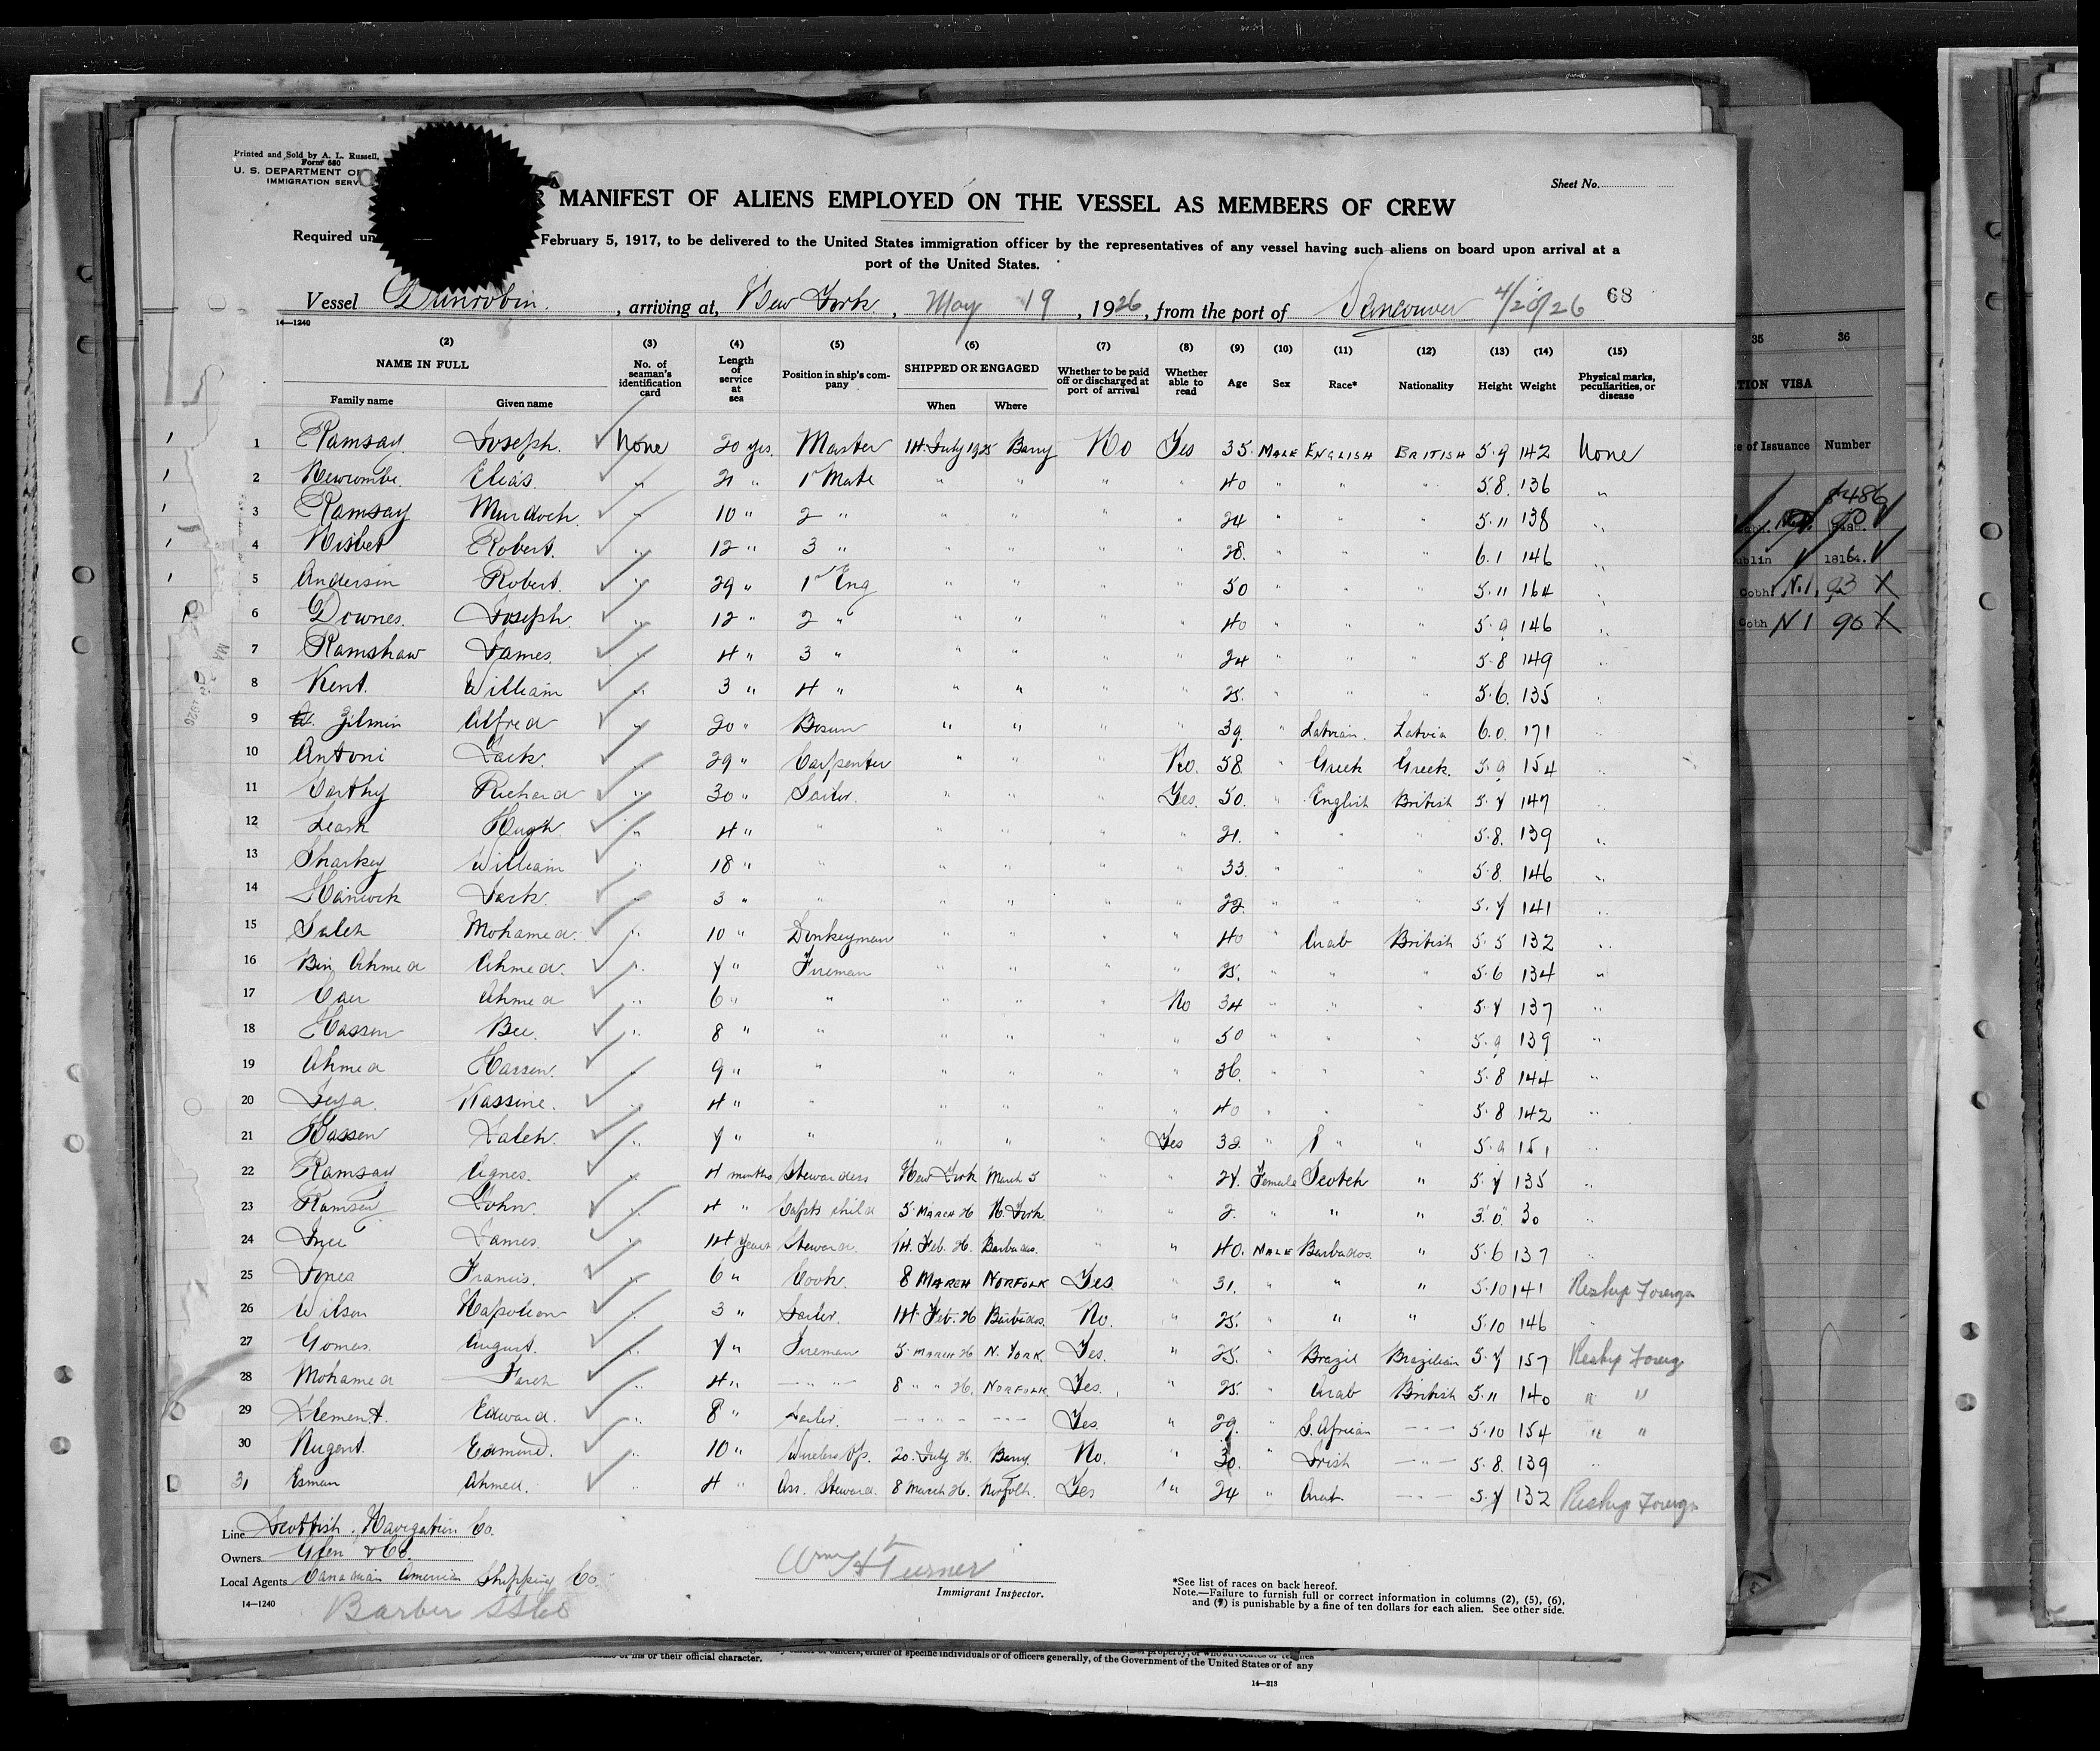 Printed and Sold by A. L. Russell,
Form 680
U. S. DEPARTMENT OF
IMMIGRATION SERV
Sheet No.
MANIFEST OF ALIENS EMPLOYED ON THE VESSEL AS MEMBERS OF CREW
Required un February 5, 1917, to be delivered to the United States immigration officer by the representatives of any vessel having such aliens on board upon arrival at a
port of the United States.
Vessel Dunrobin. , arriving at, New York , May 19 , 1926, from the port of Vancouver 4/20/26 68
14—1240
(2) (3) (4) (5) (6) (7) (8) (9) (10) (11) (12) (13) (14) (15)
NAME IN FULL No. of seaman's identification card Length of service at sea Position in ship's company SHIPPED OR ENGAGED Whether to be paid off or discharged at port of arrival Whether able to read Age Sex Race* Nationality Height Weight Physical marks, peculiarities, or disease
Family name Given name When Where
1 Ramsay Joseph. None 20 yrs. Master 14 July 1925 Barry No Yes 35 MALE ENGLISH BRITISH 5.9 142 None
2 Newcombe. Elias. " 21 " 1st Mate " " " " 40 " " " 5.8. 136 "
3 Ramsay Murdoch. " 10 " 2 " " " " " 24 " " " 5.11 138 "
4 Nisbet Robert. " 12 " 3 " " " " " 28. " " " 6.1 146 "
5 Anderson Robert. " 29 " 1st Eng " " " " 50 " " " 5.11 164 "
6 Downes. Joseph. " 12 " 2 " " " " " 40 " " " 5.9 146 "
7 Ramshaw James. " 4 " 3 " " " " " 24 " " " 5.8 149 "
8 Kent. William " 3 " 4 " " " " " 25. " " " 5.6. 135 "
9 Zilmin Alfred " 20 " Bosun " " " " 39. " Latvian. Latvia 6.0. 171 "
10 Antoni Jack. " 29 " Carpenter " " " No. 58 " Greek Greek. 5.9 154 "
11 Richard " 30 " Sailor. " " " Yes. 50. " English British 5.7 147 "
12 Leask Hugh " 4 " " " " " " 21. " " " 5.8. 139 "
13 Sharkey William " 18 " " " " " " 33. " " " 5.8. 146 "
14 Jack. " 3 " " " " " " 22. " " " 5.7 141 "
15 Saleh Mohamed. " 10 " Donkeyman " " " " 40 " Arab British 5.5 132 "
16 Bin Ahmed Ahmed. " 7 " Fireman " " " " 25. " " " 5.6 134 "
17 Ahmed " 6 " " " " " No 34 " " " 5.7 137 "
18 Hassen Bee. " 8 " " " " " " 50 " " " 5.9 139 "
19 Ahmed Hassen. " 9 " " " " " " 36. " " " 5.8 144 "
20 Kassine. " 4 " " " " " " 40 " " " 5.8 142 "
21 Hassen Saleh. " 7 " " " " " Yes 32 " " " 5.9 151 "
22 Ramsay Agnes. " 4 months Stewardess New York March 5 " " 27. Female Scotch " 5.7 135 "
23 Ramsey John. " 4 " Capts child 5 MARCH 26 N. York. " " 2. " " " 3'.0". 30 "
24 James. " 14 years Steward. 14. Feb. 26. Barbados. " " 40. MALE Barbados. " 5.6 137 "
25 Jones Francis. " 6 " Cook. 8 MARCH NORFOLK Yes. " 31. " " " 5.10 141 Reship Foreign
26 Wilson Napoleon " 3 " Sailor. 14. Feb. 26 Barbados. No. " 25. " " " 5.10 146 "
27 Gomes. August. " 7 " Fireman 5. MARCH 26 N. YORK. Yes. " 25. " Brazil Brazilian 5.7 157 Reship Foreig
28 Mohamed Farch " 4 " — " — 8 " " 26. NORFOLK Yes. " 25. " Arab British 5.11 140 " "
29 Edward. " 8 " Sailor. — — — — — — Yes. " 29. " S. African — — — 5.10 154 " "
30 Nugent. Edmund. " 10 " Wireless Op. 20. July 26. Barry No. " 30. " Irish — — — 5.8. 139 "
31 Esman Ahmed. " 4 " Ass. Steward. 8 March 26. Norfolk. Yes " 24 " Arab. — — — 5.7 132 Reship Foreign
Line Scottish Navigation Co.
Owners Glen & Co.
Local Agents Canadian American Shipping Co.
14—1240
Barber SS Co
Wm H Turner
Immigrant Inspector.
*See list of races on back hereof.
Note.—Failure to furnish full or correct information in columns (2), (5), (6),
and (7) is punishable by a fine of ten dollars for each alien. See other side.
35 36
TION VISA
e of Issuance Number
8486
ublin 18164.
Cobh N.I. 93 X
Cobh N I 90 X
of his or their official character.
officers, either of specific individuals or of officers generally, of the Government of the United States or of any
14—213